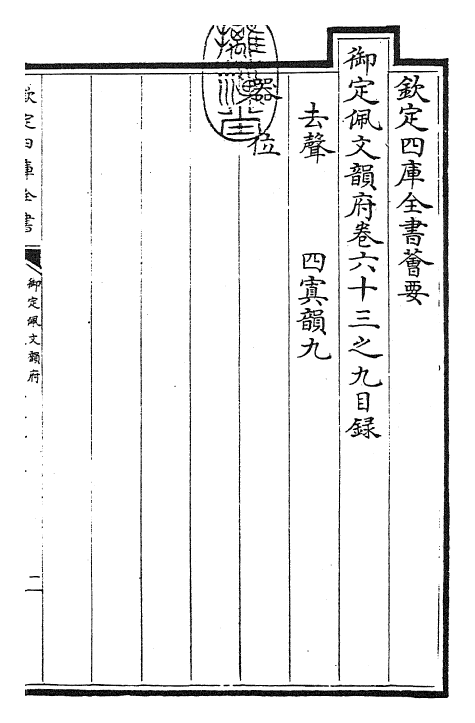 欽定四庫全書薈要
御定佩文韻府卷六十三之九目録
去聲　四寘韻九
器　位
欽定四庫全書
御定佩文韻府
二